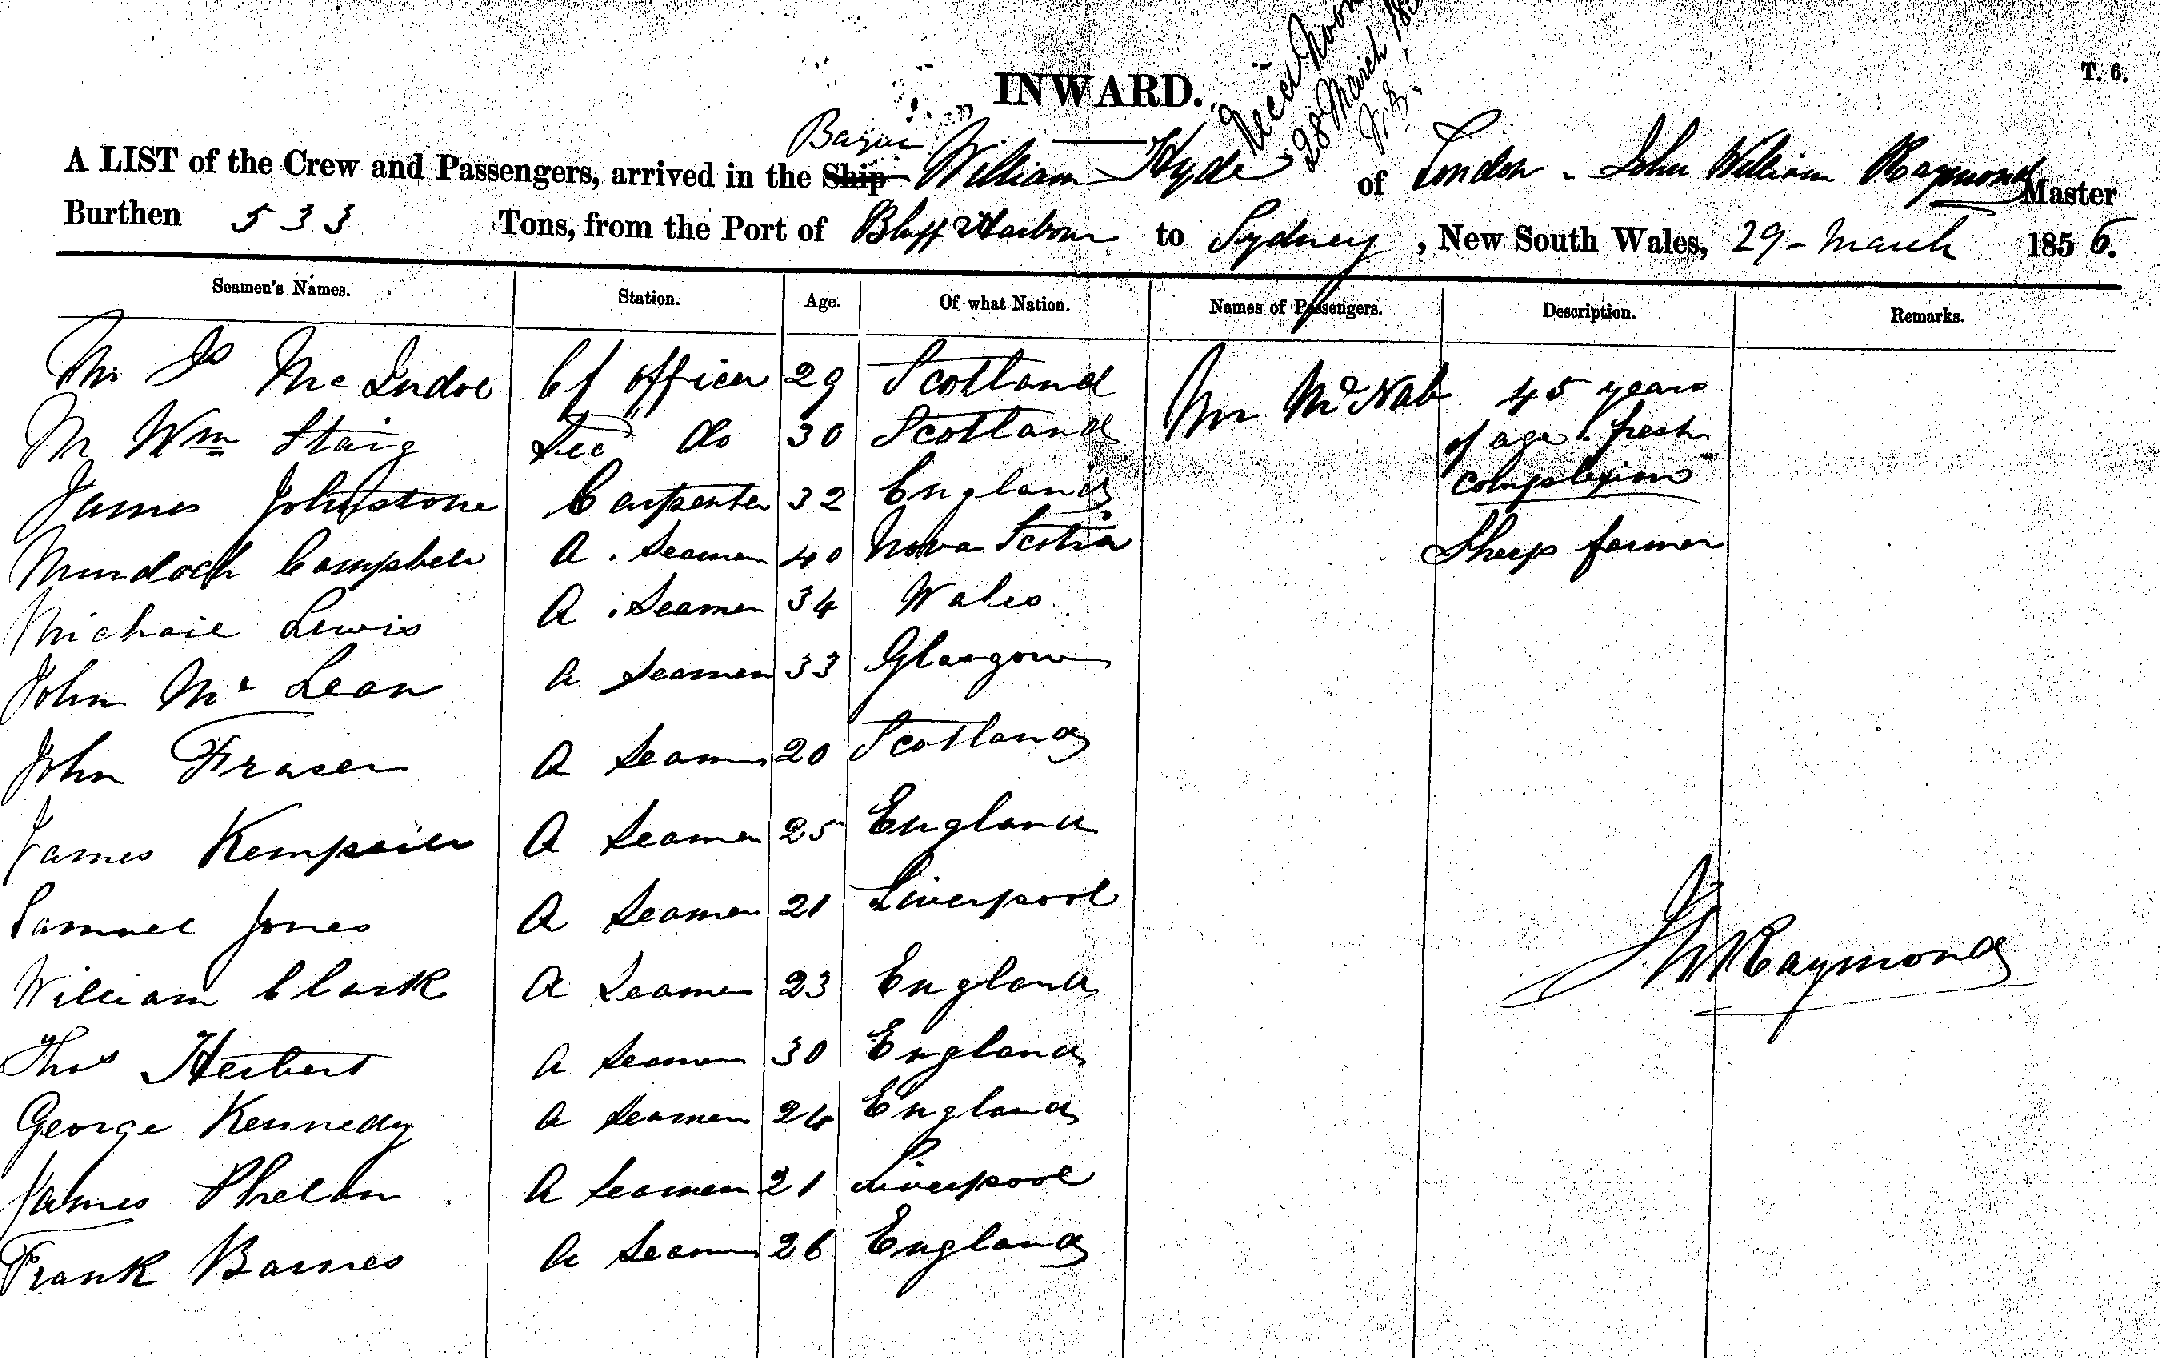 28 March
INWARD.
T. 6.
A LIST of the Crew and Passengers, arrived in the Ship William Hyde of London - John William Raymond Master
Burthen 533 Tons, from the Port of Bluff Harbour to Sydney, New South Wales, 29 - March 1856.
Seamen's Names. Station. Age. Of what Nation. Names of Passengers. Description. Remarks.
Mr Js McIndoe Cf officer 29 Scotland Mr McNab 45 years
Mr Wm Staig Sec do 30 Scotland of age fresh
James Johnstone Carpenter 32 England complexion
Murdoch Campbell A. Seamen 40 Nova Scotia Sheep farmer
Michael Lewis A. Seamen 34 Wales
John Mc Lean A Seamen 33 Glasgow
John Fraser A Seamen 20 Scotland
James A Seamen 25 England
Samuel Jones A Seamen 21 Liverpool
William Clark A Seamen 23 England
Thos Herbert A Seamen 30 England
George Kennedy A Seamen 24 England
James Phelan A Seamen 21 Liverpool
Frank Barnes A Seamen 26 England
JW Raymond